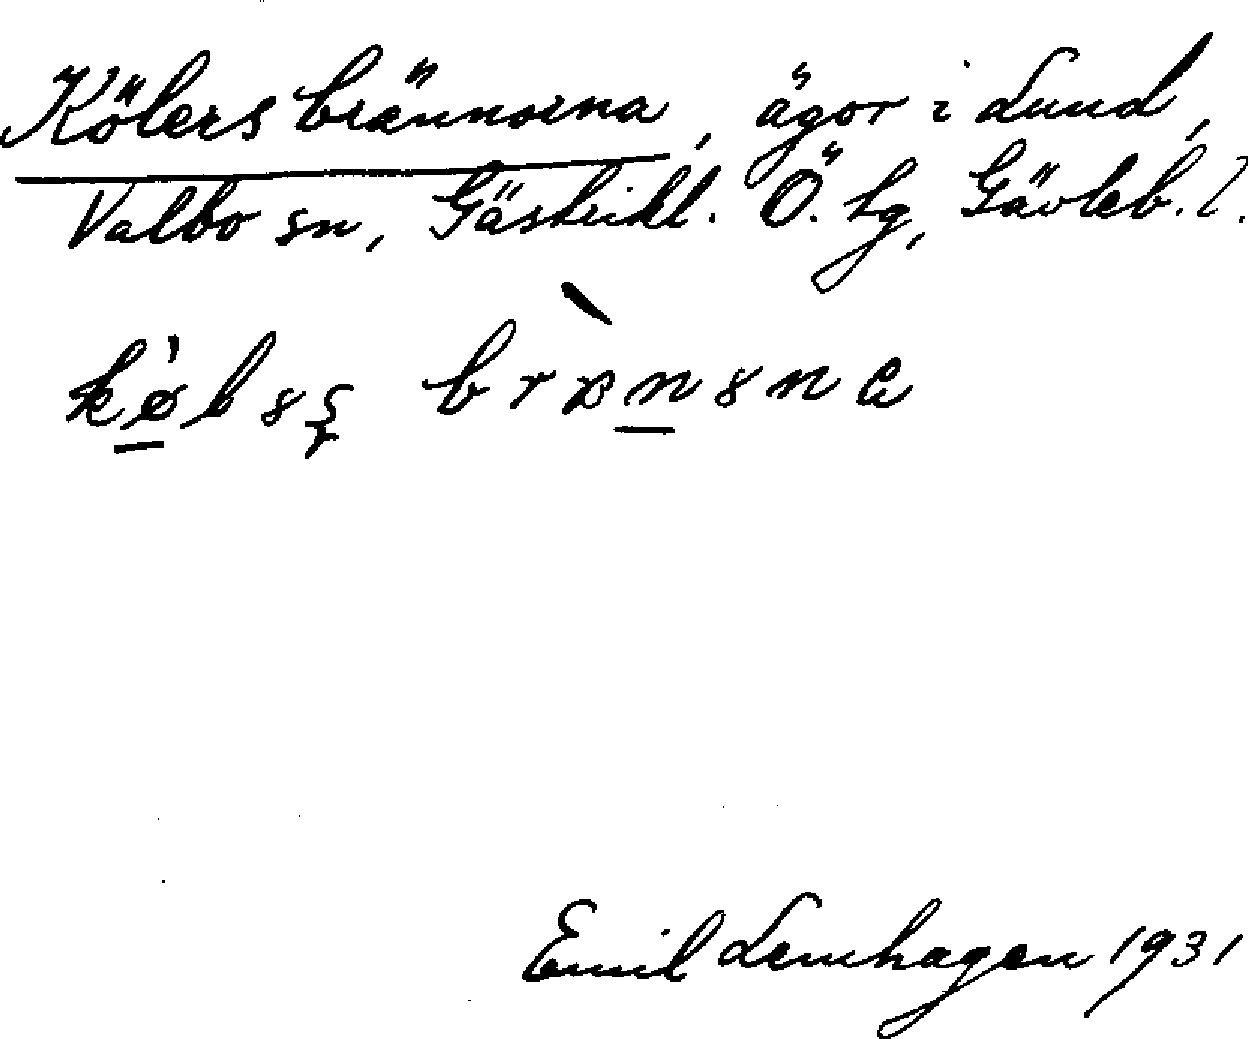 Kölers brännorna, ägor i Lund,
Valbo sn, Gästrikl. Ö. tg, Gävleb. l.
Emil Lemhagen 1931